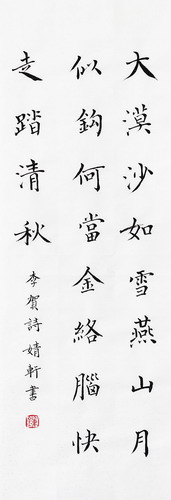 大漠沙如雪燕山月
似鈎何當金絡腦快
走踏清秋
李賀詩婧軒書